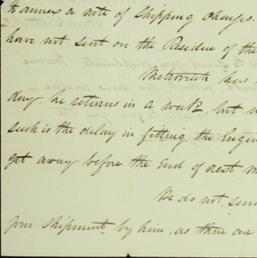 to annex a note of Shipping Charges.
have not sent on the Residue of the
has
day. he returns in a week, but
such is the delay in fitting the Engin
get away before the End of next m
We do not sen
your shipment by him, as there are